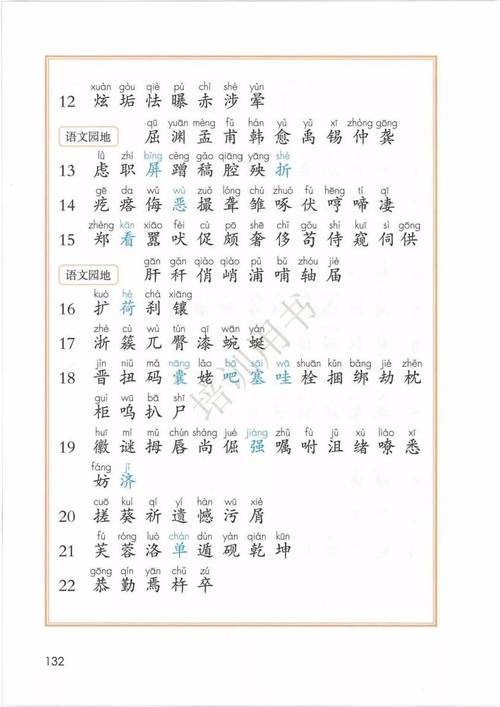 xuàn gòu qiè pù chì shè yùn
12 炫 垢 怯 曝 赤 涉 晕
qū yuān mèng fǔ hán yù yǔ xī zhòng gōng
语文园地 屈 渊 孟 甫 韩 愈 禹 锡 仲 龚
lǜ zhí bǐng cèng gǎo qiāng yāng shé
13 虑 职 屏 蹭 稿 腔 殃 折
gē da wǔ wù zuǒ lóng chú zhuó fú hēng tí qī
14 疙 瘩 侮 恶 撮 聋 雏 啄 伏 哼 啼 凄
zhèng kān xiāo fèi cù pō shē chǐ gǒu shì kuī sì gōng
15 郑 看 嚣 吠 促 颇 奢 侈 苟 侍 窥 伺 供
gān gǎn qiào qiào pǔ bǔ zhóu jiè
语文园地 肝 秆 俏 峭 浦 哺 轴 届
kuò hè chà xiāng
16 扩 荷 刹 镶
zhè cù wù tún qī wān yán
17 浙 簇 兀 臀 漆 蜿 蜒
jìn niǔ mǎ náng lǎo bā sāi wā shuān kǔn bǎng jié zhěn
18 晋 扭 码 囊 姥 吧 塞 哇 栓 捆 绑 劫 枕
guì wū bā shī
柜 呜 扒 尸
huī mí mǔ chún shàng jué jiàng zhǔ fù jǔ xù liáo xī
19 徽 谜 拇 唇 尚 倔 强 嘱 咐 沮 绪 嘹 悉
fáng jǐ
妨 济
cuō kuí qí yí hàn wū xiè
20 搓 葵 祈 遗 憾 污 屑
fú róng luò chán dùn yàn qián kūn
21 芙 蓉 洛 单 遁 砚 乾 坤
gōng qín yān chǔ zú
22 恭 勤 焉 杵 卒
培训用书
132